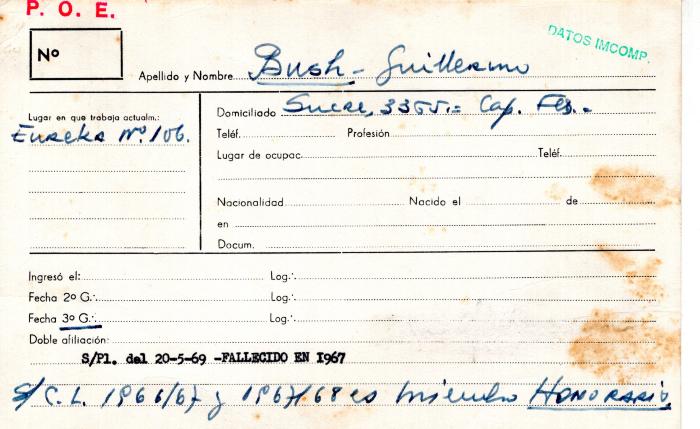 P. O. E.
DATOS IMCOMP.
Nº
Apellido y Nombre Bush - Guillermo
Lugar en que trabaja actualm.:
Eureka Nº 106.
Domiciliado Sucre, 3355.= Cap. Fed.-
Teléf. Profesión
Lugar de ocupac. Teléf.
Nacionalidad Nacido el de
en
Docum.
Ingresó el: Log.·.
Fecha 2º G.·. Log.·.
Fecha 3º G.·. Log.·.
Doble afiliación:
S/Pl. del 20-5-69 -FALLECIDO EN I967
S/ C. L. 1966/67 y 1967/68 es miembro HONORARIO.